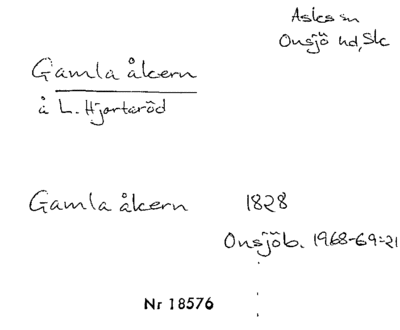 Asks sn
Onsjö hd, Sk
Gamla åkern
å L. Hjortaröd
Gamla åkern 1828
Onsjöb. 1968-69:21
Nr 18576